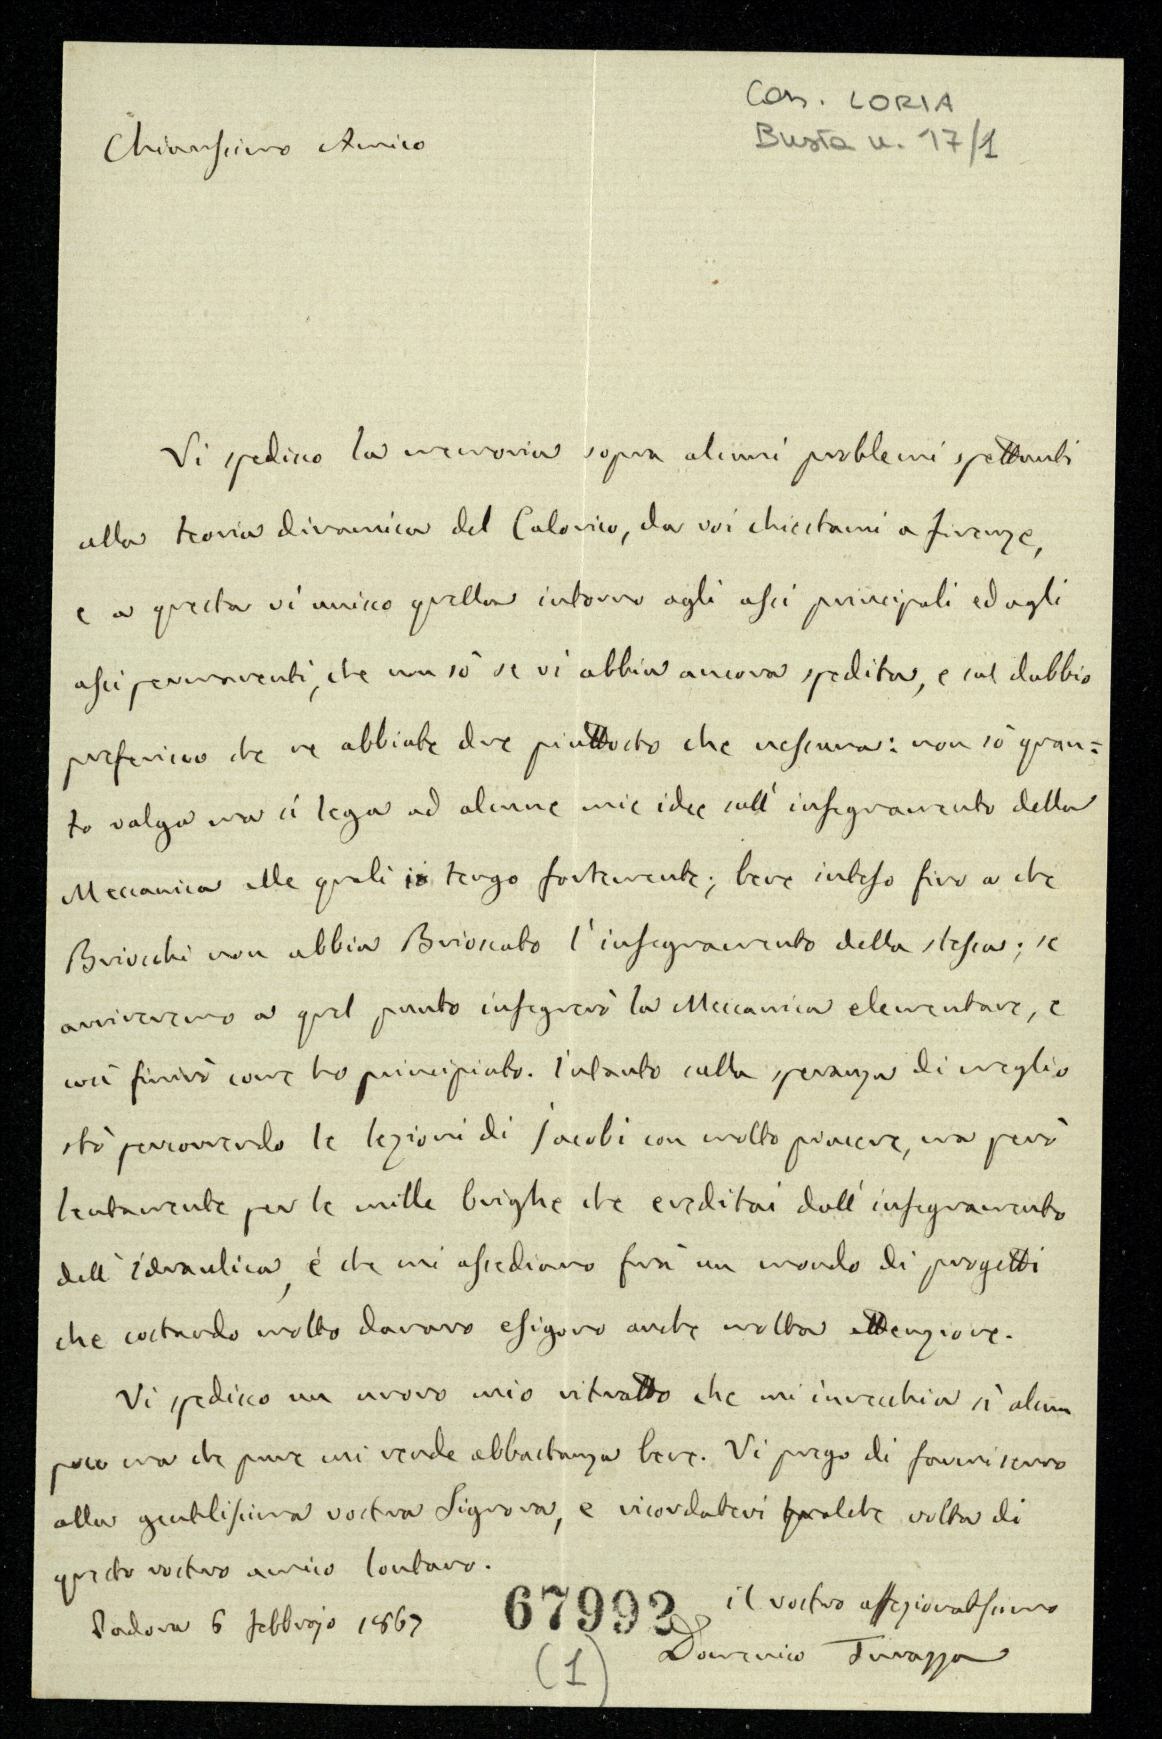 Con. LORIA
Busta n. 17/1
Chiarissimo Amico
Vi spedisco la memoria sopra alcuni problemi spettanti
alla teoria dinamica del Calorico, da voi chiestami a Firenze,
e a questa vi unisco quella intorno agli assi principali ed agli
assi permanenti, che non sò se vi abbia ancora spedita, e sul dubbio
preferisco che ne abbiate due piuttosto che nessuna: non sò quan=
to valga ma si lega ad alcune mie idee sull'insegnamento della
Meccanica alle quali io tengo fortemente; bene inteso fino a che
Brioschi non abbia Brioscato l'insegnamento della stessa; se
arriveremo a quel punto insegnerò la Meccanica elementare, e
così finirò come ho principiato. Intanto sulla speranza di meglio
stò percorrendo le lezioni di Jacobi con molto piacere, ma però
lentamente per le mille brighe che ereditai dall'insegnamento
dell'idraulica, e che mi assediano frà un mondo di progetti
che costando molto danaro esigono anche molta attenzione.
Vi spedisco un nuovo mio ritratto che mi invecchia sì alcun
poco ma che pure mi rende abbastanza bene. Vi prego di farmi servo
alla gentilissima vostra Signora, e ricordatevi qualche volta di
questo vostro amico lontano.
il vostro affezionatissimo
Padova 6 febbrajo 1867
Domenico Turazza
67992
(1)